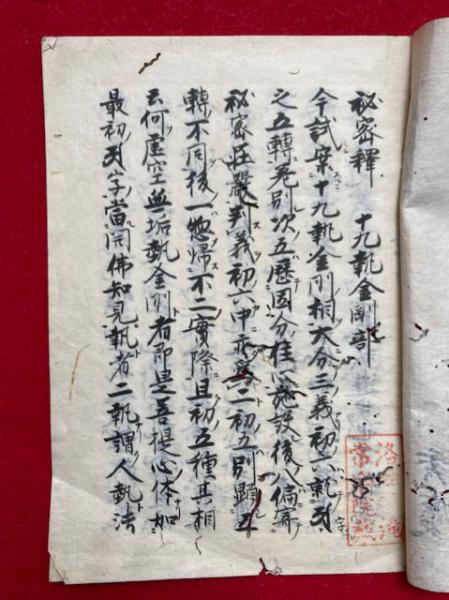 秘密釋 十九執金剛部
今試案十九執金剛相大分三義初六乾列字
之五轉差別次五歷因分住心施設後八偏寄
秘密莊嚴判義初六中亦為二初五別顯五
轉不同後一惣歸不二實際且初五種其相
云何虛空無垢執金剛者即是菩提心体如
最初列字當開佛知見執者二執謂人執法